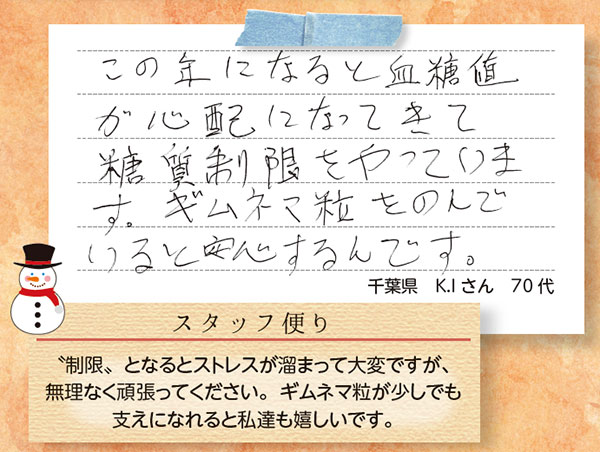 この年になると血糖値
が心配になってきて
糖質制限をやっていま
す。ギムネマ粒をのんで
いると安心するんです。
千葉県 K.Iさん 70代
スタッフ便り
〝制限〟となるとストレスが溜まって大変ですが、
無理なく頑張ってください。ギムネマ粒が少しでも
支えになれると私達も嬉しいです。